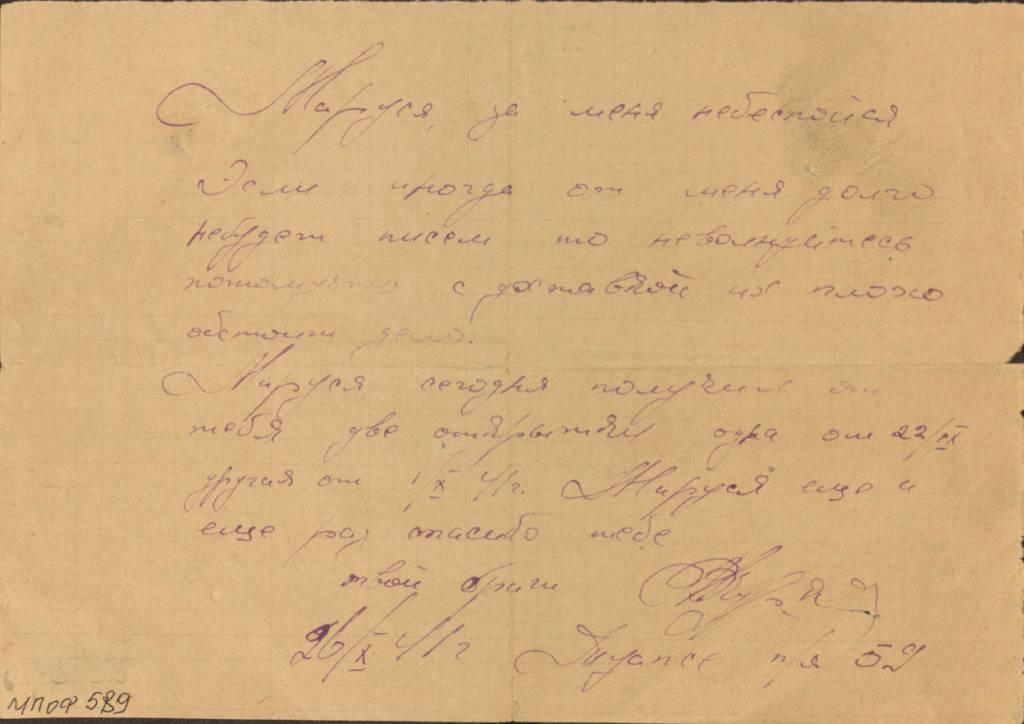 Маруся, за меня небеспойся
Если иногда от меня долго
небудет писем то неволнуйтесь
потомучто с доставкой их плохо
обстоит дело.
Маруся сегодня получил от
тебя две открытки одна от 22/IX
другая от 1/X 41г. Маруся еще и
еще раз спасибо тебе
твой
26/X 41г Туапсе п/я 59
МПОФ 589